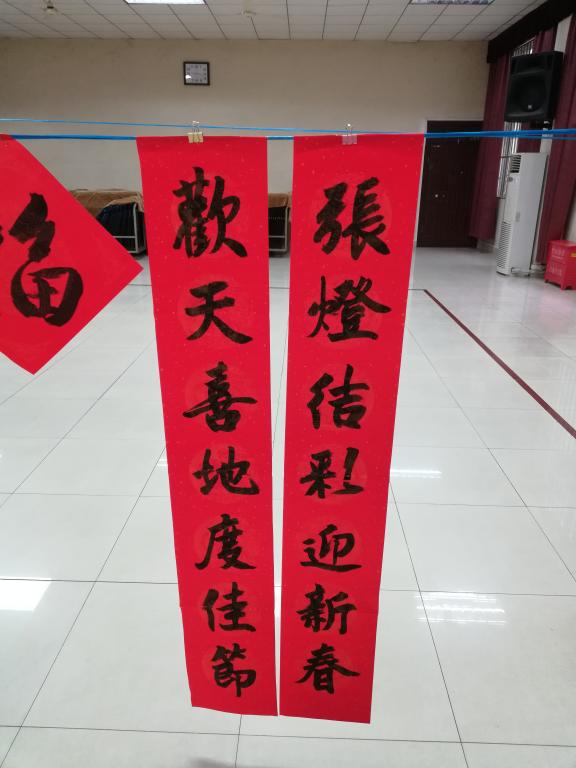 張燈结彩迎新春
歡天喜地度佳節
福